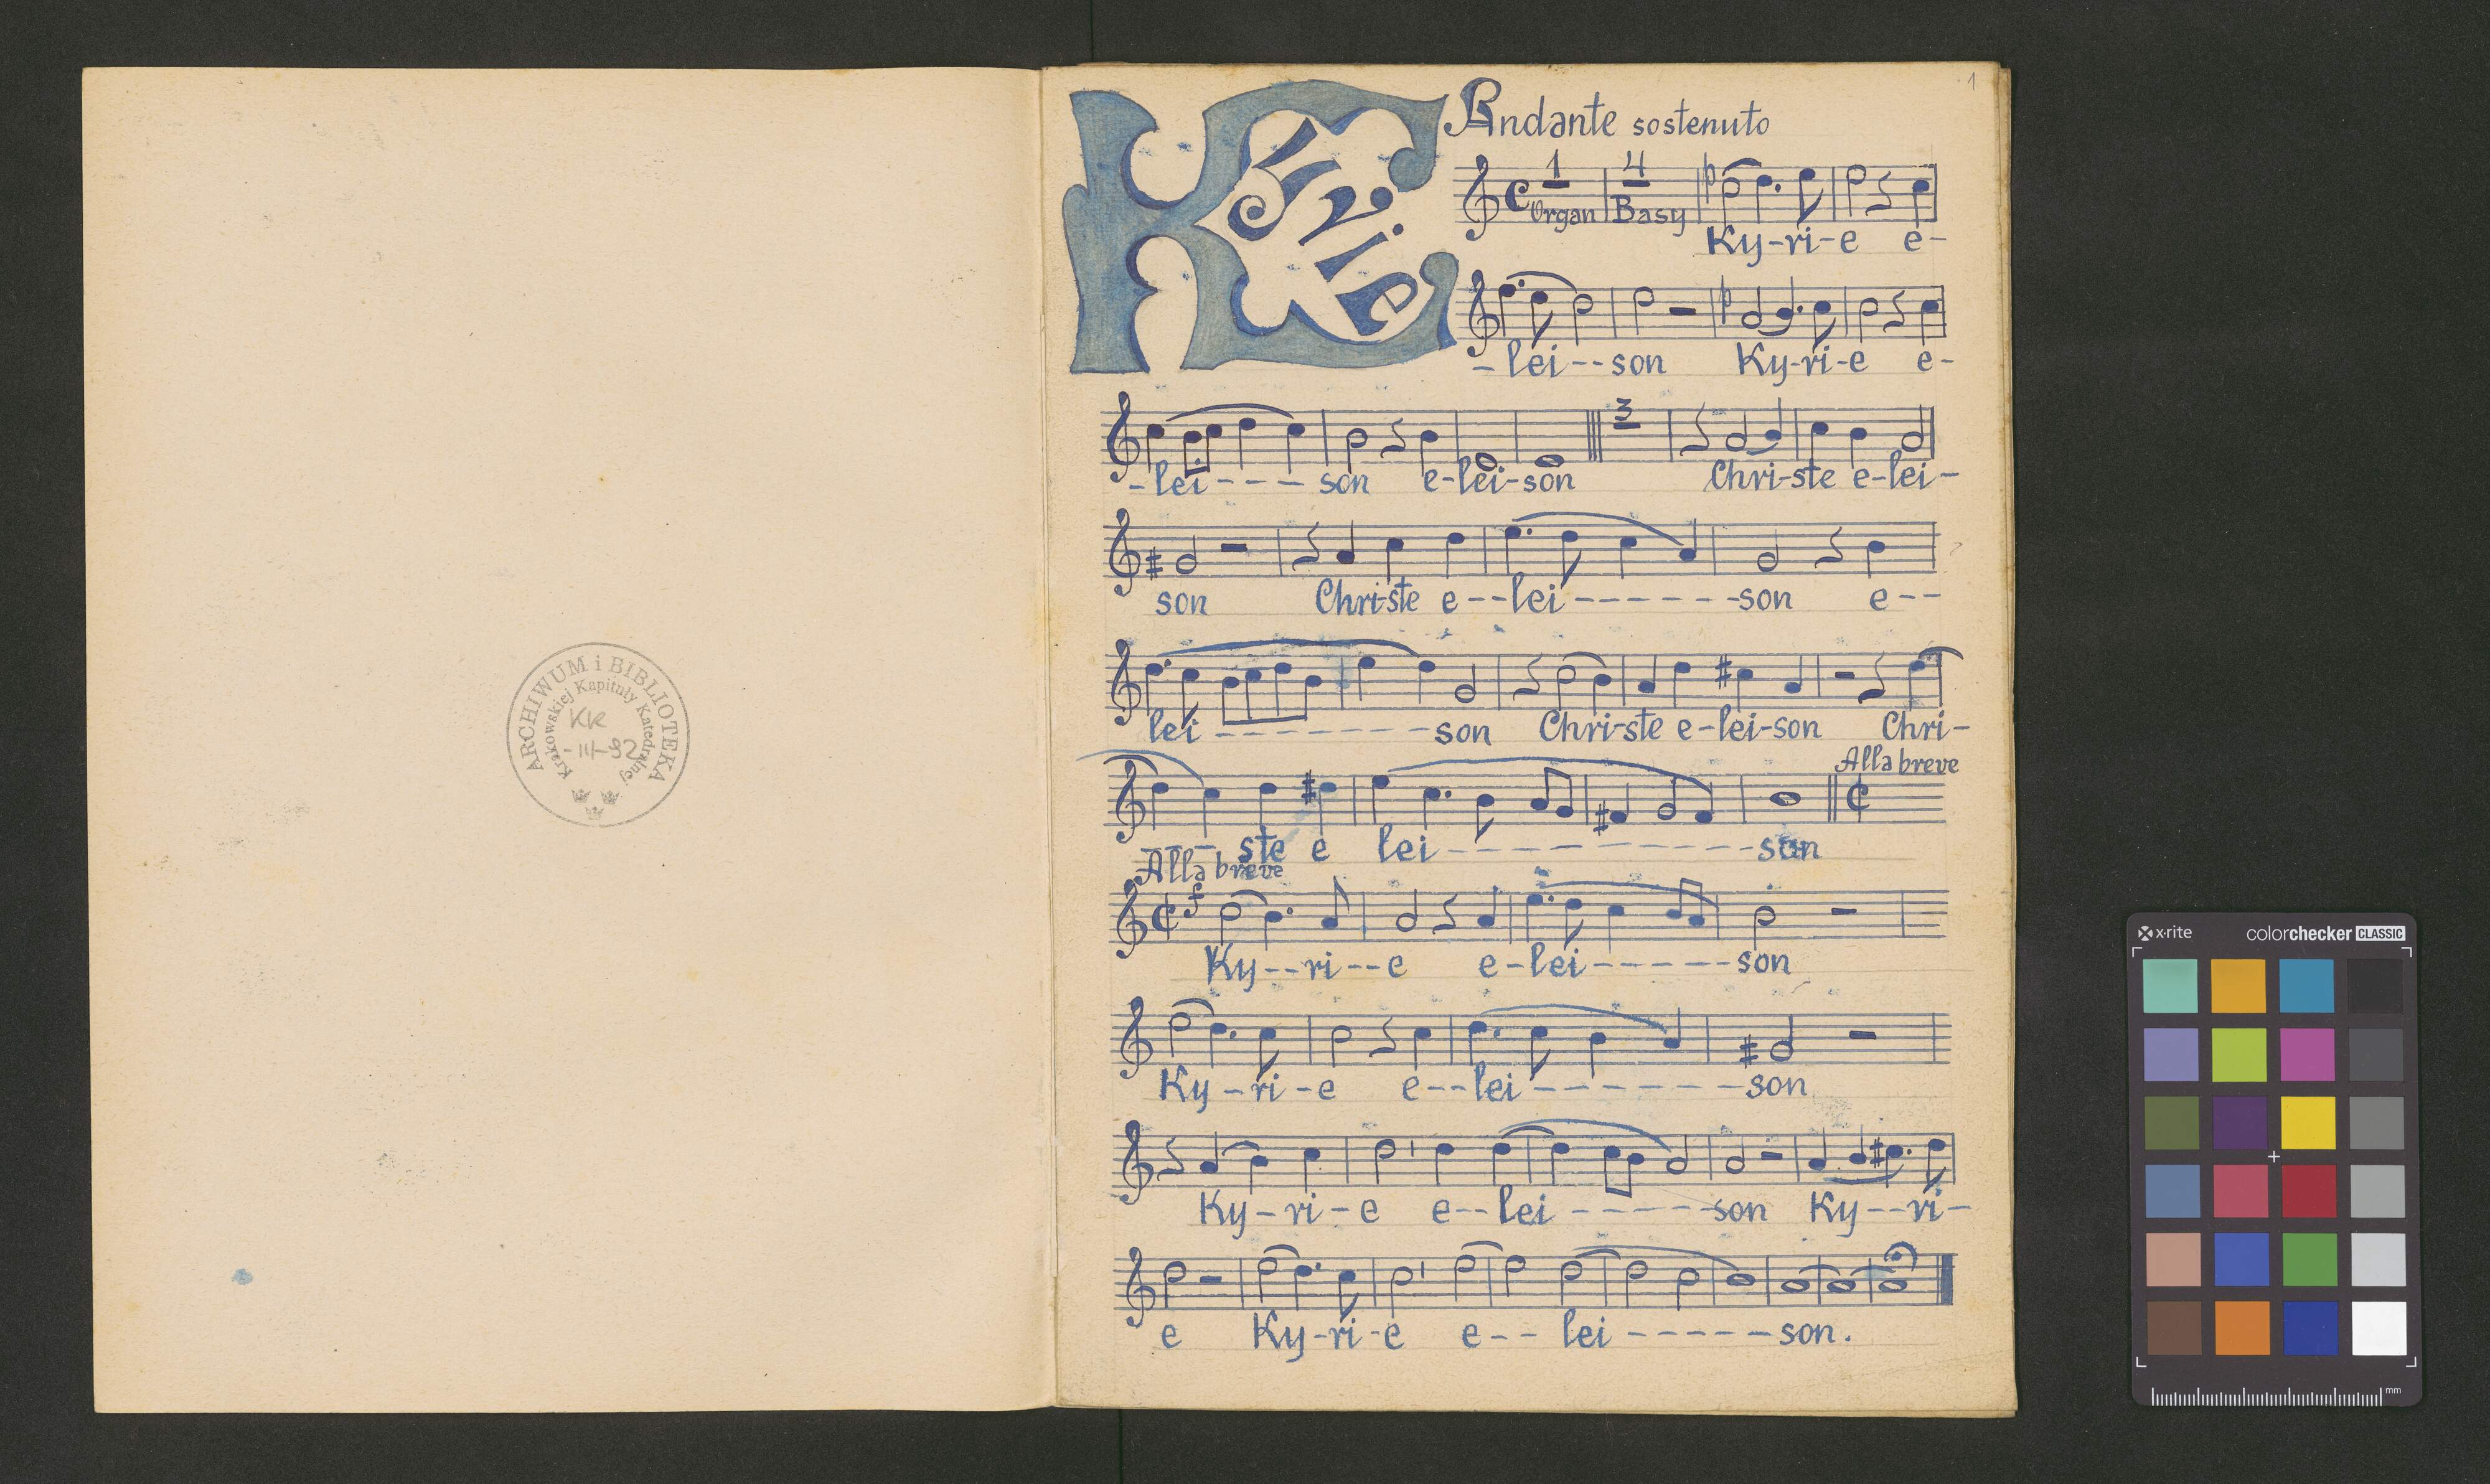 ARCHIWUM i BIBLIOTEKA
Krakowskiej Kapituły Katedralnej
KK
-III-92
1
Kyrie
Andante sostenuto
1 4
Organ Basy
p
Ky-ri-e e-
p
-lei--son Ky-ri-e e-
3
-lei---- son e-lei-son Chri-ste e-lei-
son Chri-ste e--lei------son e--
lei -------son Chri-ste e-lei-son Chri-
Alla breve
--- ste e lei----------son
Alla breve
f
Ky--ri--e e-lei------son
Ky-ri-e e--lei-------son
Ky-ri-e e--lei-----son Ky--ri-
e Ky-ri-e e-- lei-----son.
x-rite colorchecker CLASSIC
mm